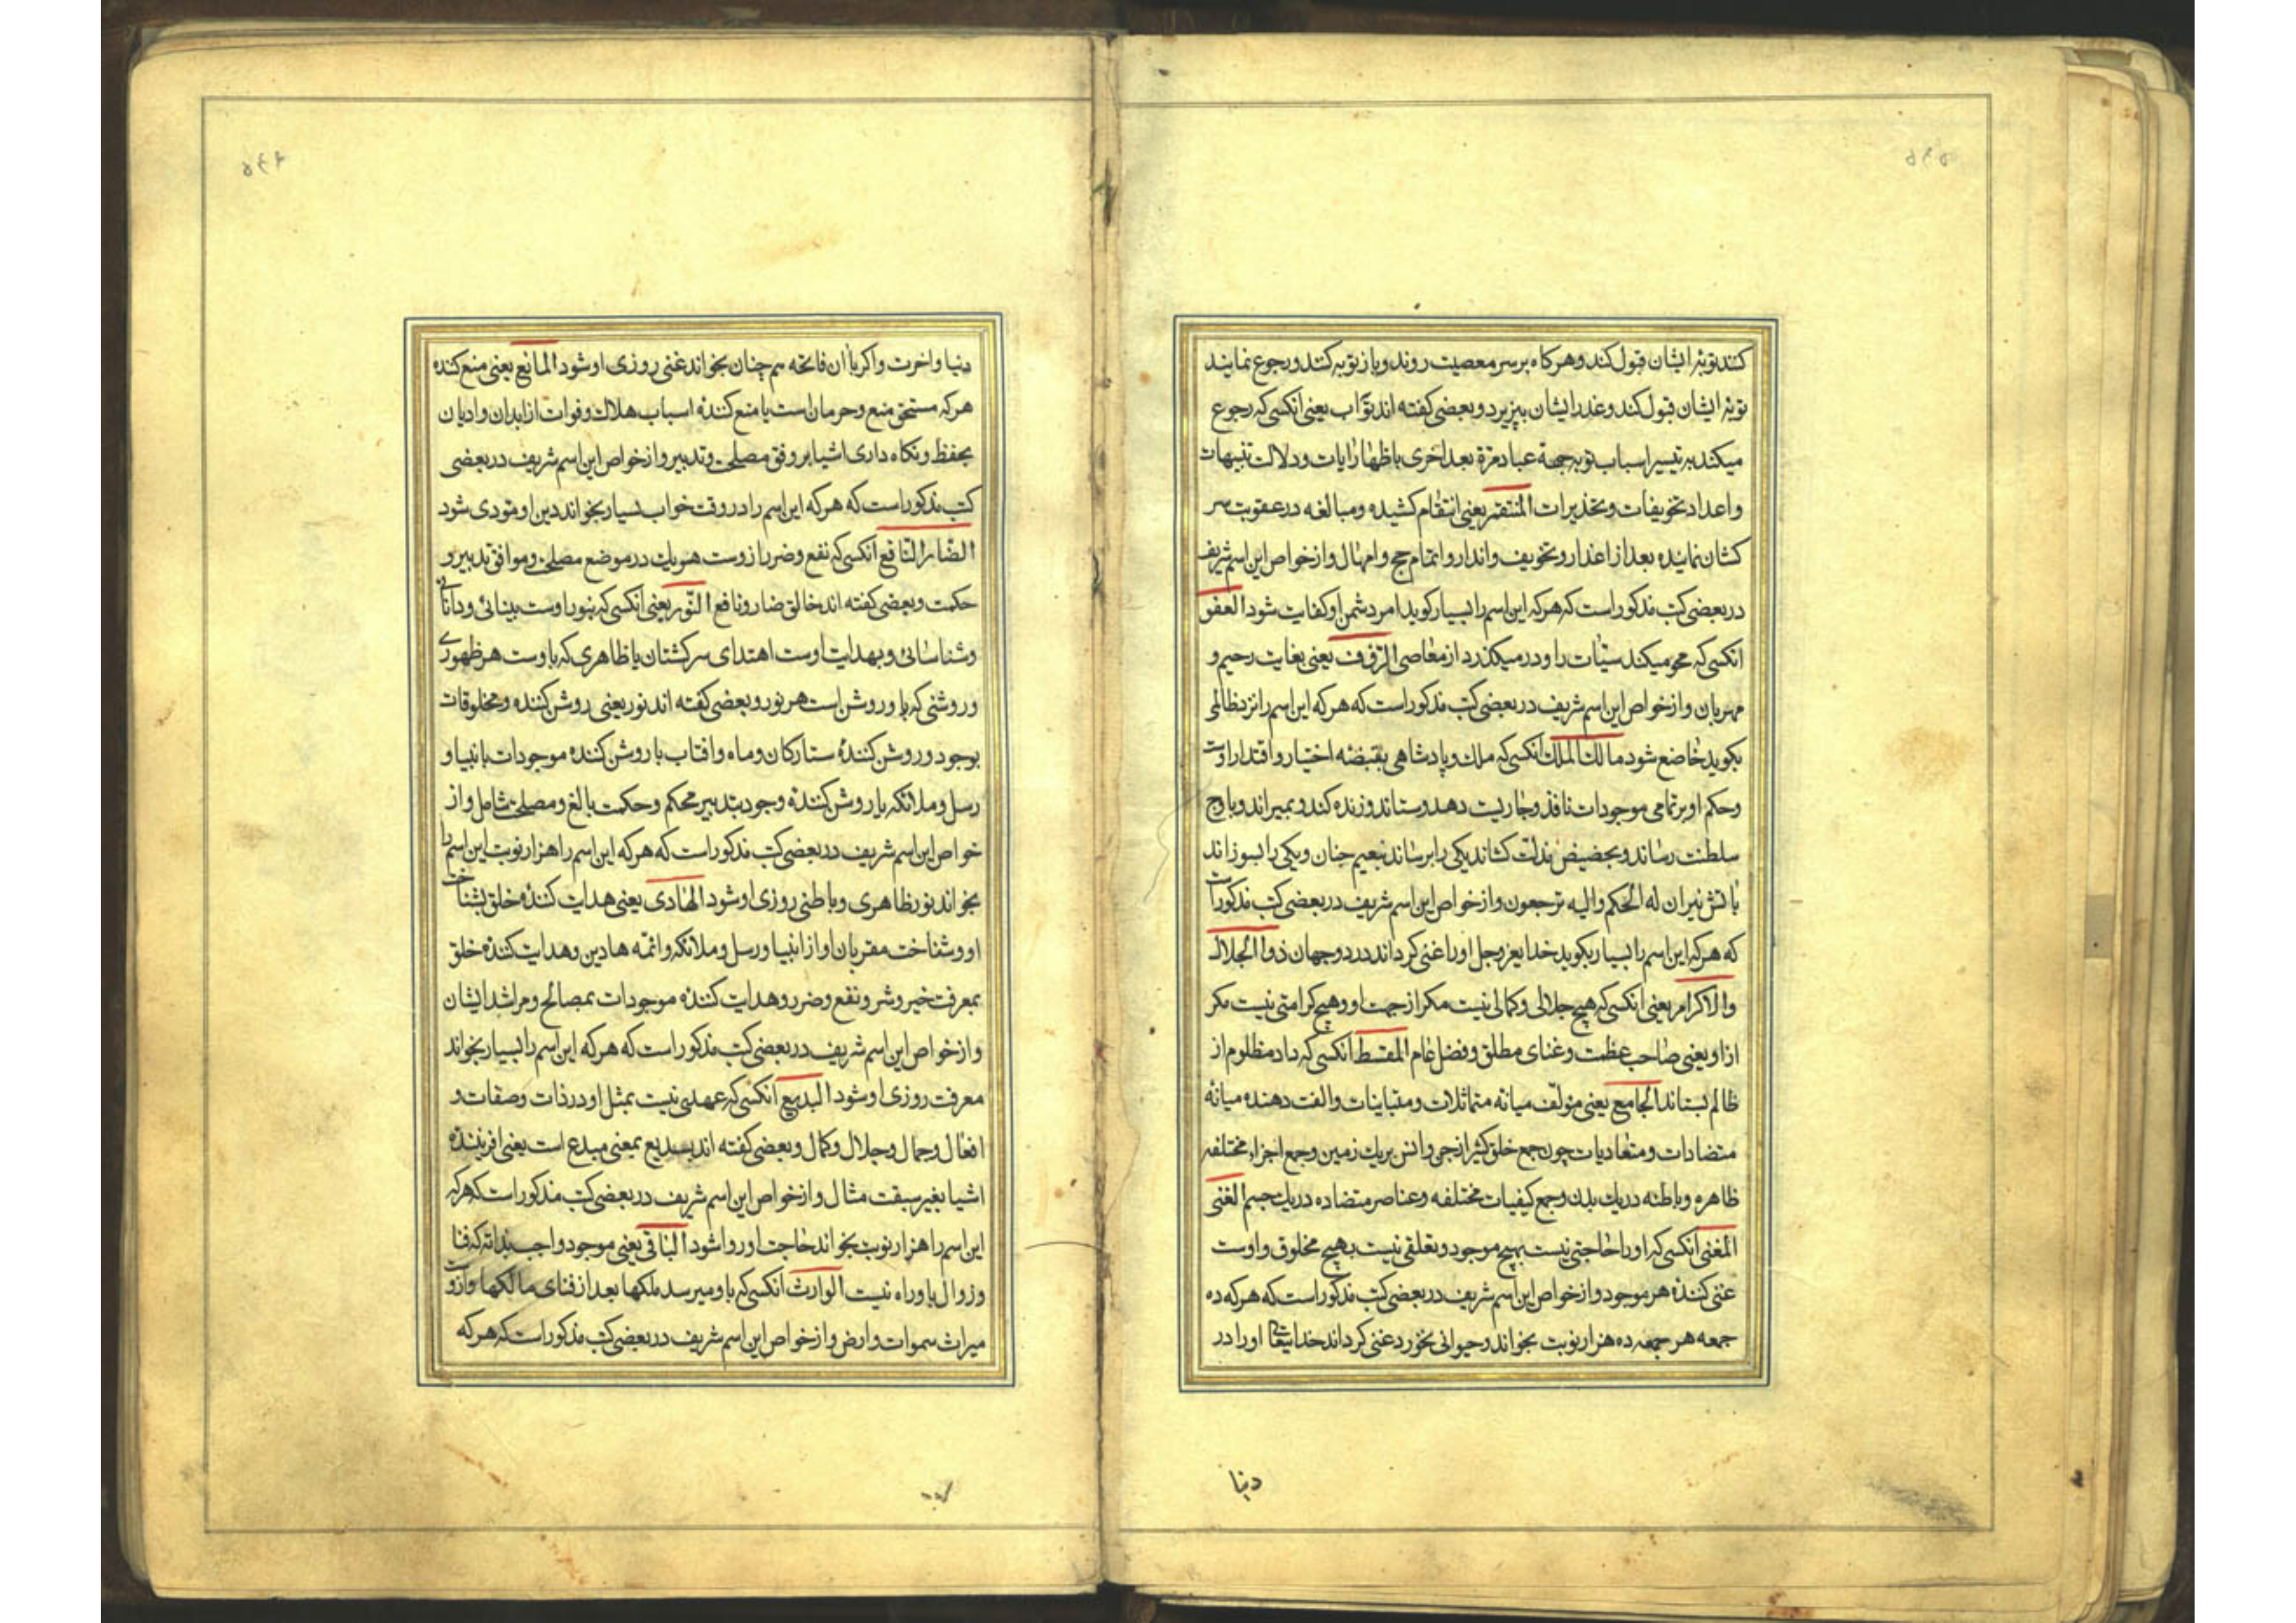 کنند توبهٔ ایشان قبول کند و هرکاه بر سر معصیت روند و باز توبه کنند و رجوع نمایند
توبهٔ ایشان قبول کند و عذر ایشان بپزیرد و بعضی کفته اند توّاب یعنی انکسی که رجوع
میکند به تیسیر اسباب توبه جهة عباد مرّة بعد اخری باظهار ایات و دلالت تنبیهات
و اعداد تخویفات و تحذیرات المنتقم یعنی انتقام کشیده و مبالغه در عقوبت سر
کشان نماینده بعد از اعذار و تخویف و انذار و اتمام حجج و امهال و از خواص این اسم شریف
در بعضی کتب مذکور است که هرکه این اسم را بسیار کوید امر دشمن او کفایت شود العفو
انکسی که محو میکند سیّئات را و در میکذرد از معاصی الرّؤف یعنی بغایت رحیم و
مهربان و از خواص این اسم شریف در بعضی کتب مذکور است که هرکه این اسم را نزد ظالمی
بکوید خاضع شود مالک الملک انکسی که ملک و پادشاهی بقبضه اختیار و اقتدار اوست
و حکم او بر تمامی موجودات نافذ و جاریست دهد و ستاند و زنده کند و بمیراند و باوج
سلطنت رساند و بحضیض مذلت کشاند یکی را برساند بنعیم جنان و یکی را بسوزاند
باتش نیران له الحکم والیه ترجعون و از خواص این اسم شریف در بعضی کتب مذکور است
که هرکه این اسم را بسیار بکوید خدای عزوجل او را غنی کرداند در دو جهان ذوالجلال
والاکرام یعنی انکسی که هیچ جلالی و کمالی نیست مکر از جهت او و هیچ کرامتی نیست مکر
از او یعنی صاحب عظمت و غنای مطلق و فضل عام المقسط انکسی که داد مظلوم از
ظالم بستاند الجامع یعنی مؤلّف میانه متماثلات و متباینات و الفت دهنده میانهٔ
متضادات و متعادیات چون جمع خلق کثیر از جن و انس بر یک زمین و جمع اجزاء مختلفه
ظاهره و باطنه در یک بدن و جمع کیفیات مختلفه و عناصر متضاده در یک جسم الغنی
المغنی انکسی که او را حاجتی نیست بهیچ موجود و تعلقی نیست بهیچ مخلوق و اوست
غنی کنندهٔ هر موجود و از خواص این اسم شریف در بعضی کتب مذکور است که هرکه ده
جمعه هر جمعه ده هزار نوبت بخواند و حیوانی نخورد غنی کرداند خدایتعالی او را در
دنیا
دنیا و اخرت و اکر با ان فاتحه هم چنان بخواند غنی روزی او شود المانع یعنی منع کننده
هرکه مستحق منع و حرمان است یا منع کنندهٔ اسباب هلاک و فوات از ابدان و ادیان
بحفظ و نکاه داری اشیا بر وفق مصلحت و تدبیر و از خواص این اسم شریف در بعضی
کتب مذکور است که هرکه این اسم را در وقت خواب بسیار بخواند دین او مؤدی شود
الضّار النّافع انکسی که نفع و ضرر از وست هر یک در موضع مصلحت و موافق تدبیر و
حکمت و بعضی کفته اند خالق ضار و نافع النّور یعنی انکسی که بنور اوست بینائی و دانائی
و شناسائی و بهدایت اوست اهتدای سرکشتان یا ظاهری که باوست هر ظهوری
و روشنی که باو روشن است هر نور و بعضی کفته اند نور یعنی روشن کننده و مخلوقات
بوجود و روشن کنندهٔ ستارکان و ماه و افتاب یا روشن کننده موجودات بانبیا و
رسل و ملائکه یا روشن کنندهٔ وجود بتدبیر محکم و حکمت بالغ و مصلحت شامل و از
خواص این اسم شریف در بعضی کتب مذکور است که هرکه این اسم را هزار نوبت این اسم را
بخواند نور ظاهری و باطنی روزی او شود الهادی یعنی هدایت کنندهٔ خلق بشناخت
او و شناخت مقربان او از انبیا و رسل و ملائکه و ائمّه هادین و هدایت کنندهٔ خلق
بمعرفت خیر و شر و نفع و ضرر و هدایت کننده موجودات بمصالح و مراشد ایشان
و از خواص این اسم شریف در بعضی کتب مذکور است که هرکه این اسم را بسیار بخواند
معرفت روزی او شود البدیع انکسی که عهدی نیست بمثل او در ذات و صفات و
افعال و جمال و جلال و کمال و بعضی کفته اند بدیع بمعنی مبدع است یعنی افرینندهٔ
اشیا بغیر سبقت مثال و از خواص این اسم شریف در بعضی کتب مذکور است که هرکه
این اسم را هزار نوبت بخواند حاجت او روا شود الباقی یعنی موجود واجب بذاته که فنا
و زوال باو راه نیست الوارث انکسی که باو میرسد ملکها بعد از فنای مالکها و ازوست
میراث سموات و ارض و از خواص این اسم شریف در بعضی کتب مذکور است که هرکه